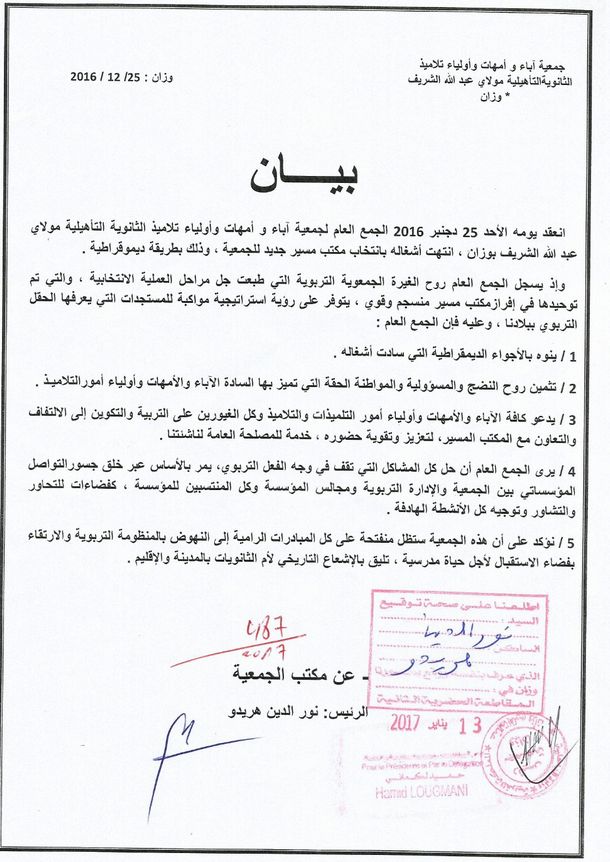 جمعية آباء و أمهات وأولياء تلاميذ
الثانويةالتأهيلية مولاي عبد الله الشريف
* وزان
وزان : 25/ 12 / 2016
بيـــان
انعقد يومه الأحد 25 دجنبر 2016 الجمع العام لجمعية آباء و أمهات وأولياء تلاميذ الثانوية التأهيلية مولاي
عبد الله الشريف بوزان ، انتهت أشغاله بانتخاب مكتب مسير جديد للجمعية ، وذلك بطريقة ديموقراطية .
وإذ يسجل الجمع العام روح الغيرة الجمعوية التربوية التي طبعت جل مراحل العملية الانتخابية ، والتي تم
توحيدها في إفرازمكتب مسير منسجم وقوي ، يتوفر على رؤية استراتيجية مواكبة للمستجدات التي يعرفها الحقل
التربوي ببلادنا ، وعليه فإن الجمع العام :
1 / ينوه بالأجواء الديمقراطية التي سادت أشغاله .
2 / تثمين روح النضج والمسؤولية والمواطنة الحقة التي تميز بها السادة الآباء والأمهات وأولياء أمورالتلاميـذ .
3 / يدعو كافة الآباء والأمهات وأولياء أمور التلميذات والتلاميذ وكل الغيورين على التربية والتكوين إلى الالتفاف
والتعاون مع المكتب المسير، لتعزيز وتقوية حضوره ، خدمة للمصلحة العامة لناشئتنا .
4 / يرى الجمع العام أن حل كل المشاكل التي تقف في وجه الفعل التربوي، يمر بالأساس عبر خلق جسورالتواصل
المؤسساتي بين الجمعية والإدارة التربوية ومجالس المؤسسة وكل المنتسبين للمؤسسة ، كفضاءات للتحاور
والتشاور وتوجيه كل الأنشطة الهادفة .
5 / نؤكد على أن هذه الجمعية ستظل منفتحة على كل المبادرات الرامية إلى النهوض بالمنظومة التربوية والارتقاء
بفضاء الاستقبال لأجل حياة مدرسية ، تليق بالإشعاع التاريخي لأم الثانويات بالمدينة والإقليم .
487
2017
- عن مكتب الجمعية
الرئيس: نور الدين هريدو
اطلعنا على صحة توقيع
السيد :
نور الدين
الساكن
هريدو
الذي عرف بنفسه
وزان في :
المقاطعة الحضرية الثانية
13 يناير 2017
Pour le Président et Par Délégation
حميد لكماني
Hamid LOUGMANI